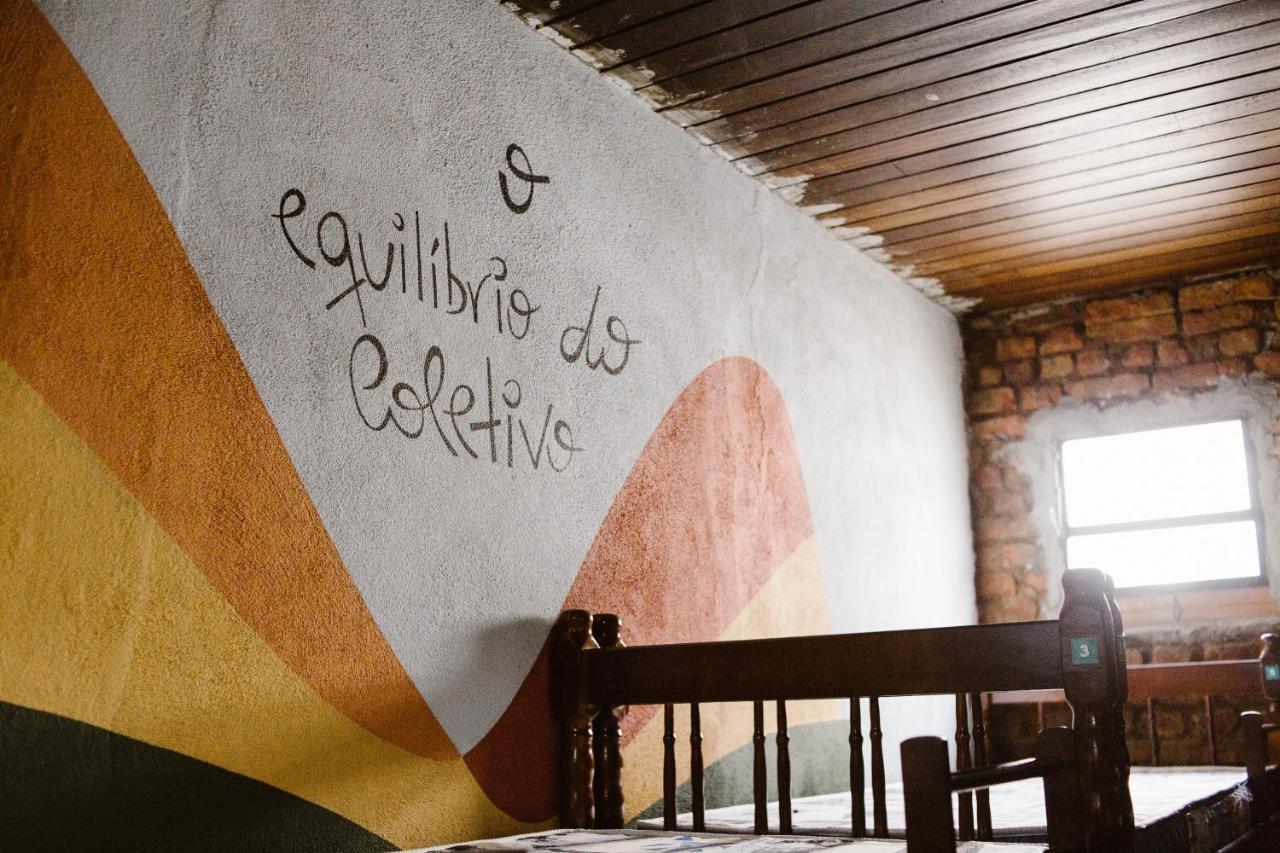 o
equilíbrio do
Coletivo
3